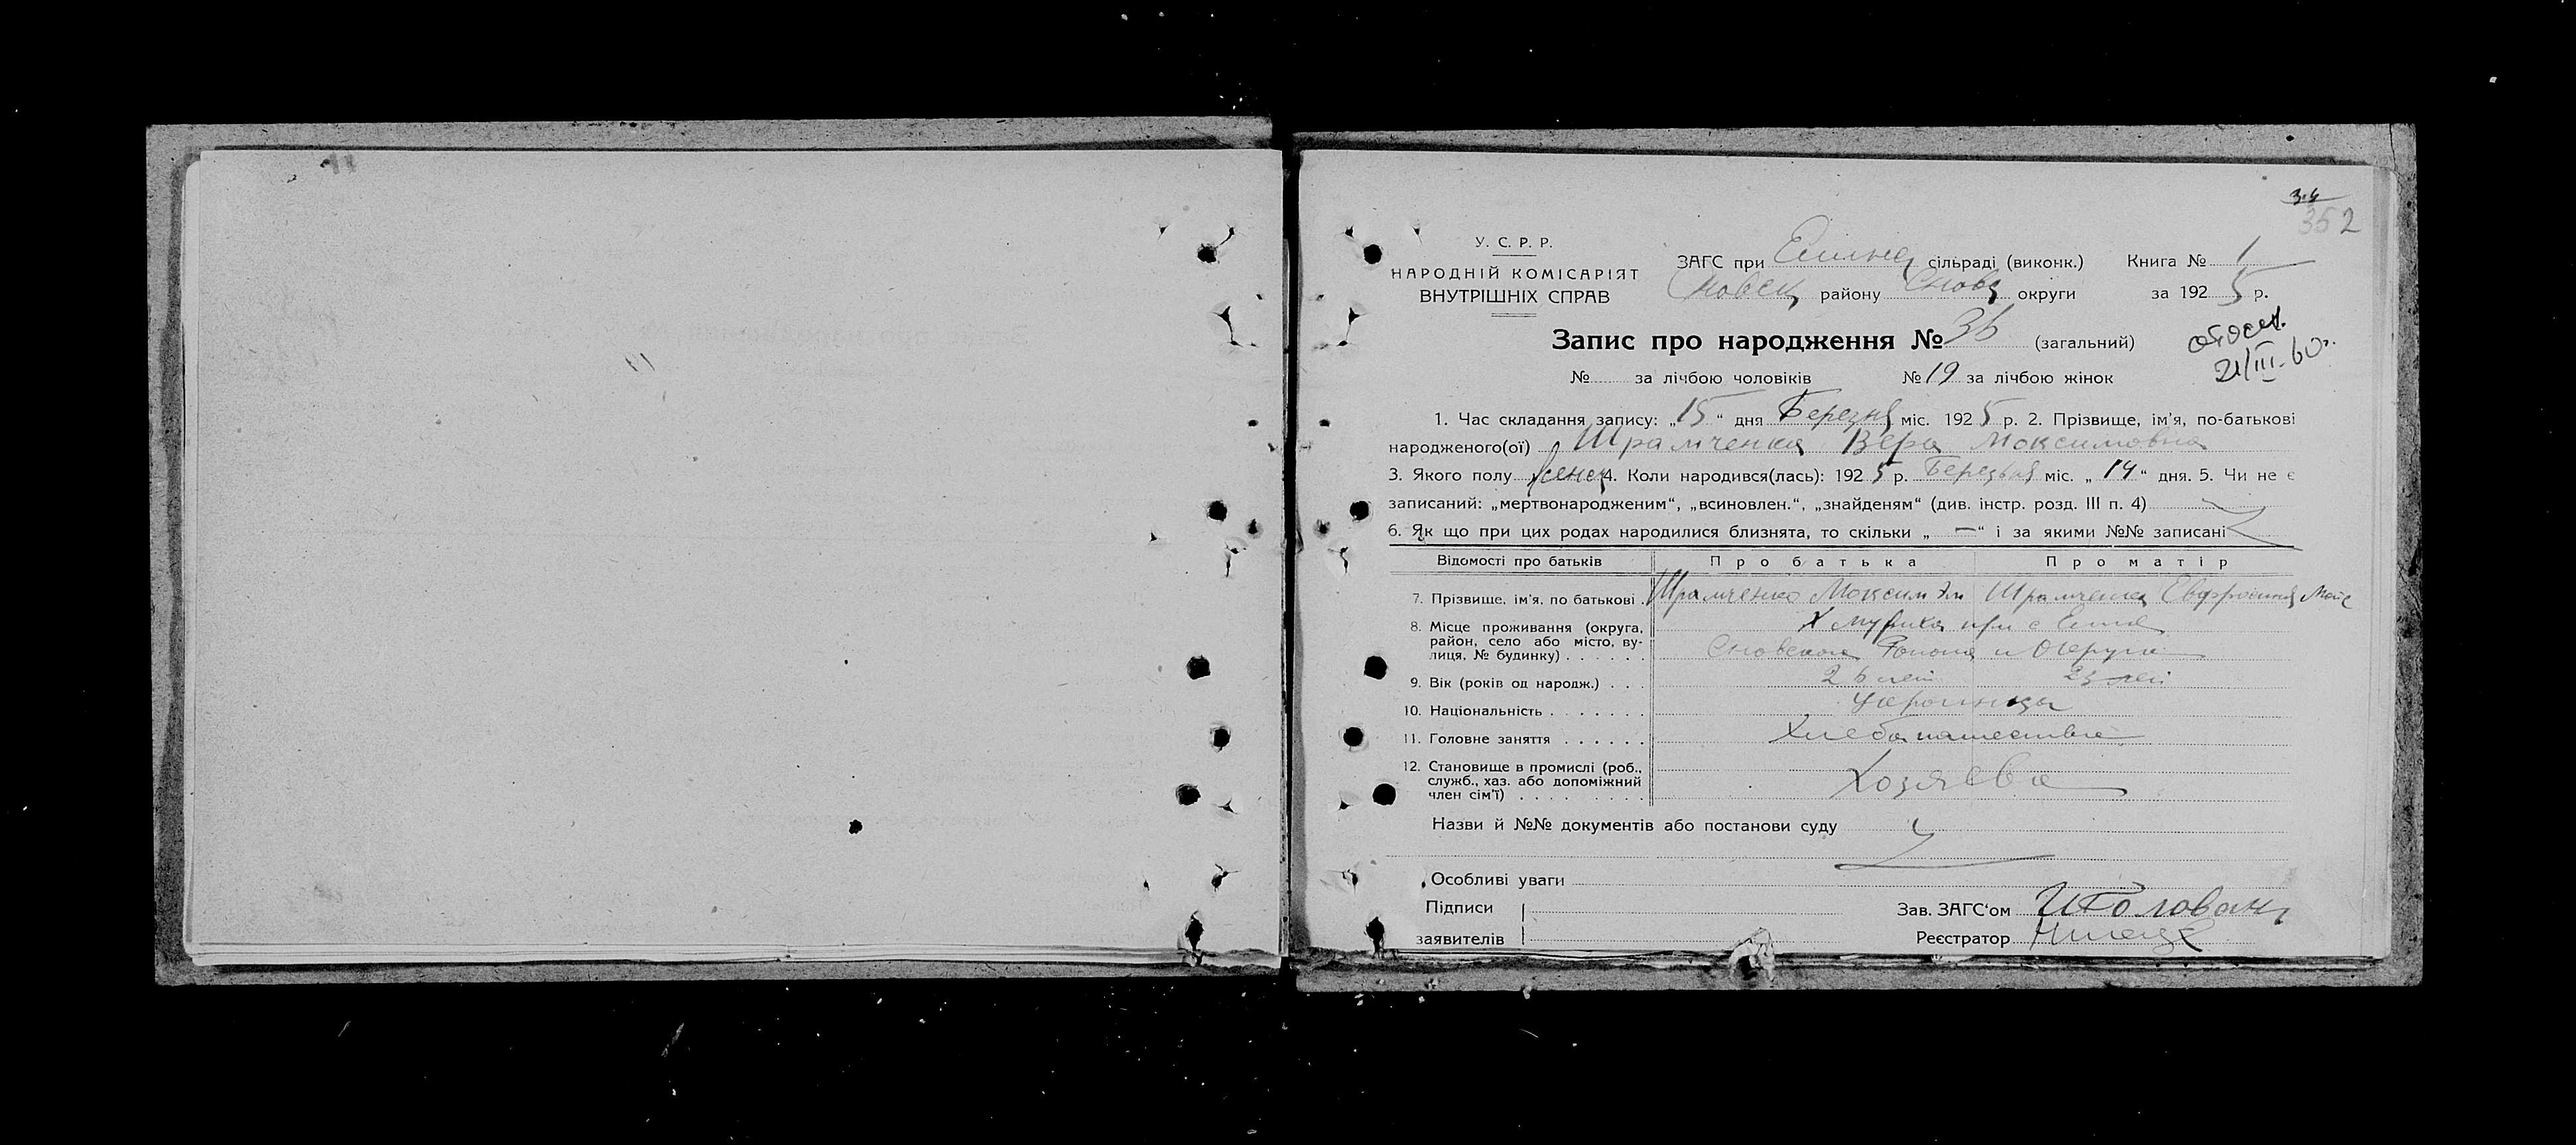 352
У. С. Р. Р.
НАРОДНІЙ КОМІСАРІЯТ
ВНУТРІШНІХ СПРАВ
ЗАГС при сільраді (виконк.) Книга № 1
району округи за 1925 р.
Запис про народження № 36 (загальний)
21/III-60г.
№ за лічбою чоловіків № 19 за лічбою жінок
1. Час складання запису: „15“ дня міс. 1925 р. 2. Прізвище, ім'я, по-батькові
народженого(ої) Шрамченко Вера Максимовна
3. Якого полу женс 4. Коли народився(лась): 1925 р. міс. „14“ дня. 5. Чи не є
записаний: „мертвонародженим“, „всиновлен.“, „знайденям“ (див. інстр. розд. III п. 4)
6. Як що при цих родах народилися близнята, то скільки „—“ і за якими №№ записані
Відомості про батьків Про батька Про матір
7. Прізвище, ім'я, по батькові Шрамченко Максим Шрамченко Евфросиния
8. Місце проживання (округа,
район, село або місто, ву-
лиця, № будинку)
при с
Сновского Района и Округи
9. Вік (років од народж.) 26 лет 23 лет
10. Національність Украинцы
11. Головне заняття Хлебопашество
12. Становище в промислі (роб.,
служб., хаз. або допоміжний
член сім'ї)
Хозяева
Назви й №№ документів або постанови суду
Особливі уваги
Підписи
заявителів
Зав. ЗАГС'ом
Реєстратор